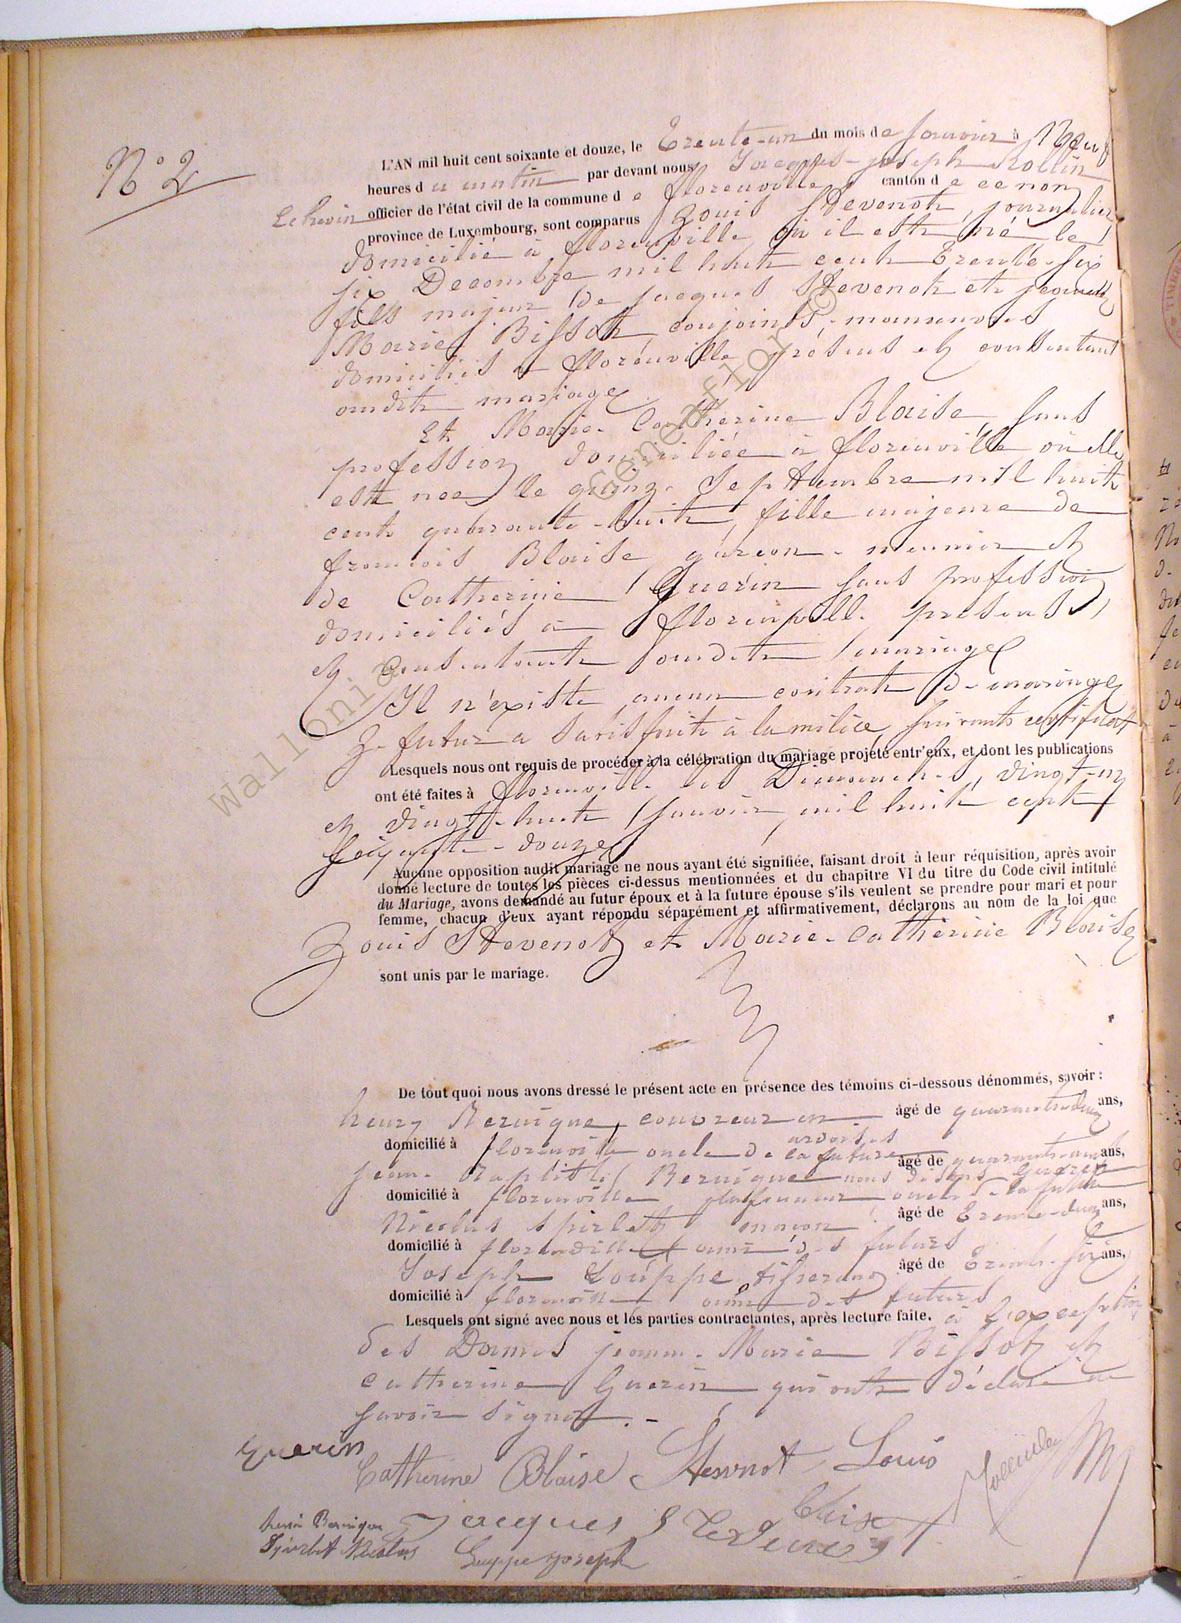 N° 2
L'AN mil huit cent soixante et douze, le Trente-un du mois de Janvier à Neuf
heures du matin par devant nous Jacques-joseph Rollin
Echevin officier de l'état civil de la commune de florenville canton de ce nom
province de Luxembourg, sont comparus Louis Stevenot, journalier
domicilié à florenville, où il est né le
six Decembre mil huit cent Trente-six
fils majeur de jacques Stevenot et jeanne
Marie Bissot, conjoints, manœuvres
domiciliés à florenville présens et consentant
audit mariage
Et Marie-Catherine Blaise, sans
profession domiciliée à florenville où elle
est née le quinze Septembre mil huit
cent quarante-huit, fille majeure de
francois Blaise garcon-meunier et
de Catherine Guérin sans profession
domiciliés à florenville présens
et consentant audit mariage
Il n'existe aucun contrat de mariage
Le futur a satisfait à la milice, suivant certificat
Lesquels nous ont requis de procéder à la célébration du mariage projeté entr'eux, et dont les publications
ont été faites à florenville les Dimanches vingt-un
et vingt-huit janvier mil huit cent
soixante-douze
Aucune opposition audit mariage ne nous ayant été signifiée, faisant droit à leur réquisition, après avoir
donné lecture de toutes les pièces ci-dessus mentionnées et du chapitre VI du titre du Code civil intitulé
du Mariage, avons demandé au futur époux et à la future épouse s'ils veulent se prendre pour mari et pour
femme, chacun d'eux ayant répondu séparément et affirmativement, déclarons au nom de la loi que
Louis Stevenot et Marie-Catherine Blaise
sont unis par le mariage.
De tout quoi nous avons dressé le présent acte en présence des témoins ci-dessous dénommés, savoir :
henry couvreur en ardoises âgé de quarante-deux ans,
domicilié à florenville oncle de la future
jean-Baptiste nous disons Guerin âgé de ans,
domicilié à florenville plafonneur oncle de la future
Nicolas Spirlet maçon âgé de Trente-deux ans,
domicilié à florenville ami des futurs
Joseph Louppe tisserand âgé de Trente-six ans,
domicilié à florenville ami des futurs
Lesquels ont signé avec nous et les parties contractantes, après lecture faite. à l'exception
des Dames jeanne-Marie Bissot et
catherine Guerin qui ont déclaré ne
savoir signer.-
Guerin
Catherine Blaise Stesvnot Louis
Blaise
Jacques Stevenot
Spirlet Nicolas Louppe joseph
wallonia Geneaflor ©